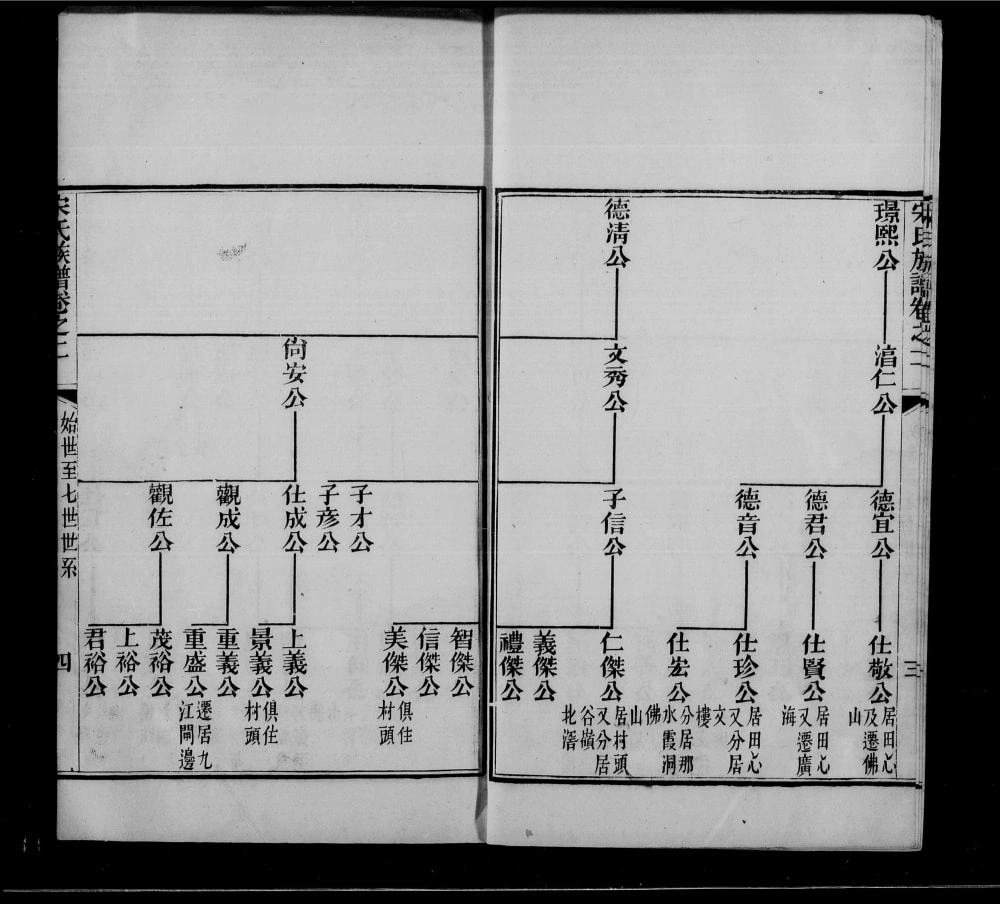 宋氏族譜卷之二
三
璟熙公
淯仁公
德宜公
德君公
德音公
仕敬公
居田心
及遷佛
山
仕賢公
居田心
又遷廣
海
仕珍公
居田心
又分居
文
樓
仕宏公
分居那
水霞洞
佛
山
德清公
文秀公
子信公
仁傑公
居村頭
又分居
谷嶺
北潯
義傑公
禮傑公
智傑公
信傑公
美傑公
俱住
村頭
子才公
子彥公
尙安公
仕成公
觀成公
觀佐公
上義公
景義公
俱住
村頭
重義公
重盛公
遷居九
江閘邊
茂裕公
上裕公
君裕公
宋氏族譜卷之二
始世至七世世系
四